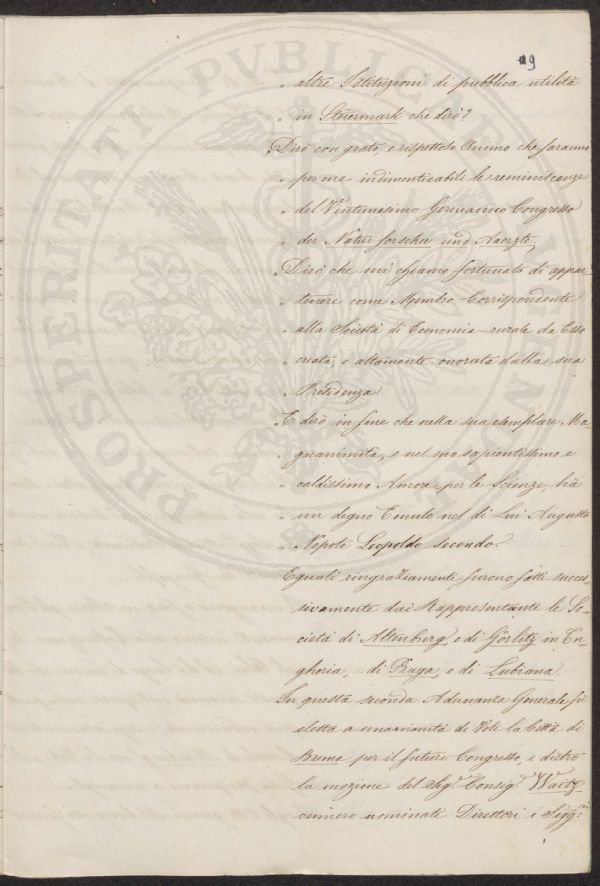 19
„ altre Istituzioni di pubblica utilità
„ in Steiermark che dirò?
„ Dirò con grato, e rispettoso Animo che saranno
„ per me indimenticabili le reminiscenze
„ del Ventunesimo Germanico Congresso
„ der Naturforscher und Aaerzte
„ Dirò che mi chiamo fortunato di appar
„ tenere come Membro Corrispondente
„ alla Società di Economia-rurale da Esso
„ creata, e altamente onorata dalla sua
„ Presidenza.
E dirò in fine che nella sua esemplare Ma-
„ gnanimità, e nel suo sapientissimo e
„ caldissimo Amore per le Scienze, hà
„ un degno Emulo nel di Lui Augusto
„ Nepote Leopoldo secondo.
Eguali ringraziamenti furono fatti succes,
sivamente dai Rappresentante le So-
cietà di Altenburg, e di Görlitz in Un-
gheria, di Praga, e di Lubiana.
In questa seconda Adunanza Generale fù
eletta a unanimità di Voti la Città di
Brema per il futuro Congresso, e dietro
la mozione del Sig.r Consig.r Waitz,
vennero nominati Direttori i Sigg.ri
PROSPERITATI PUBLICAE AUGENDAE